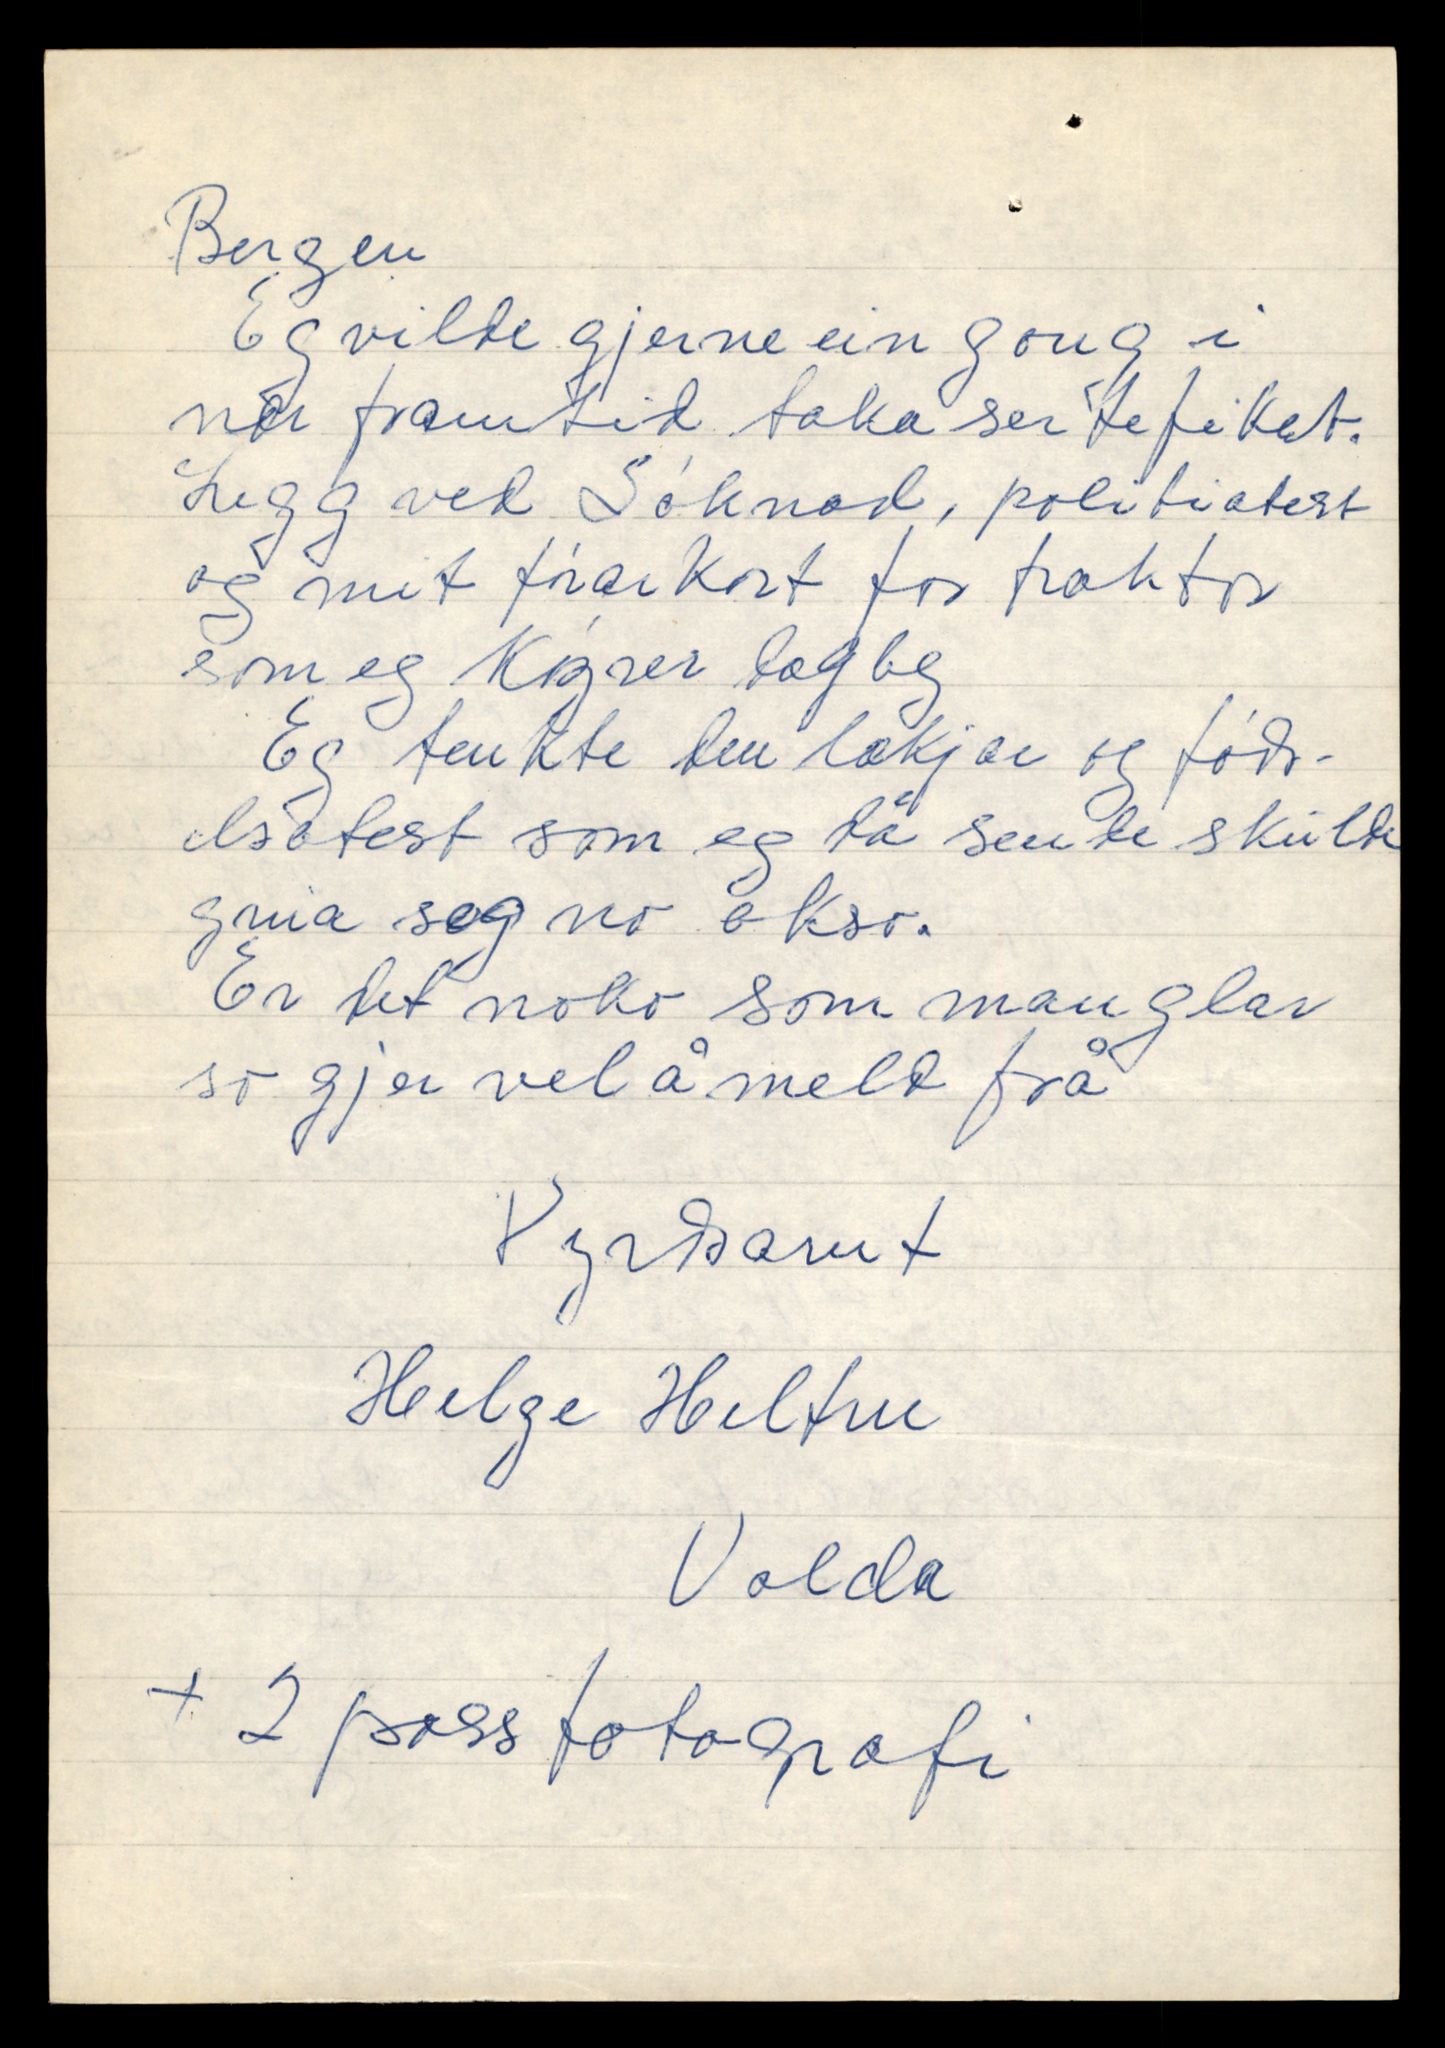 Bergen
Eg vilde gjerne ein gong i
nær framtid taka sertefikat.
Legg ved Søknad, politiatest
og mit førarkort for traktor
som eg køyrer dagleg
Eg tenkte den lækjar og føds-
elsatest som eg då sende skulde
greia seg no okso.
Er det noko som manglar
so gjer vel å meld frå
Vyrdsamt
Helge Heltne
Volda
+ 2 pass fotografi